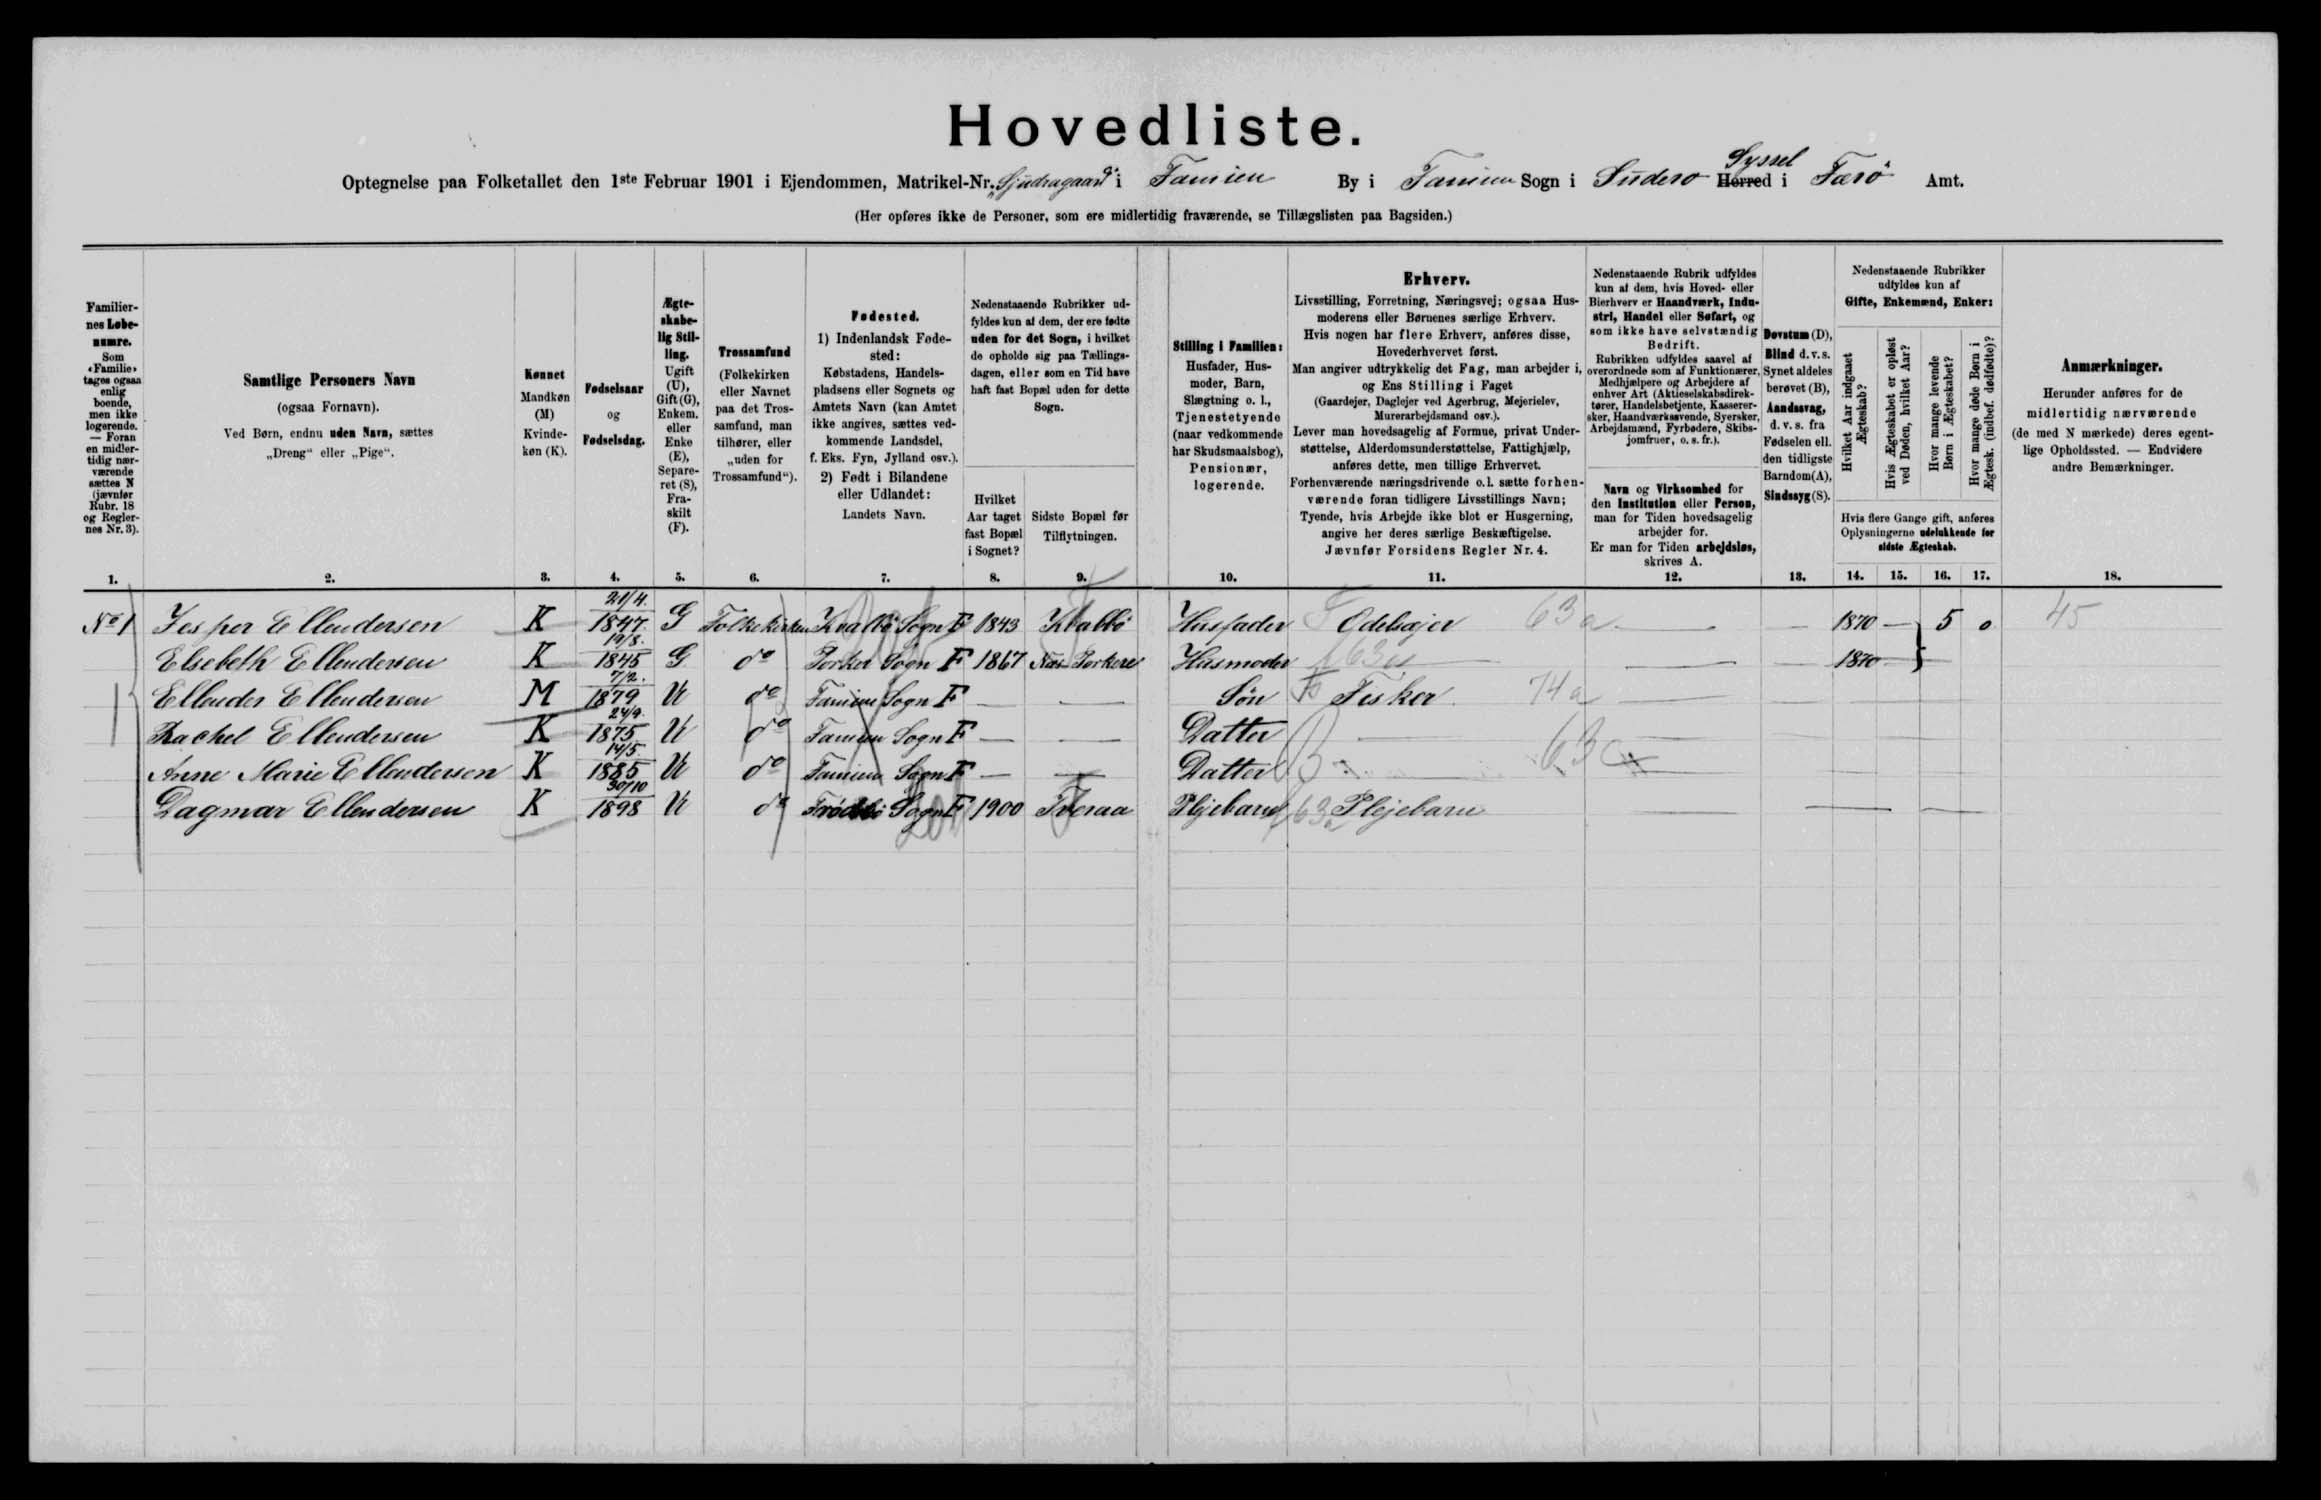 Hovedliste.
Syssel
Optegnelse paa Folketallet den 1ste Februar 1901 i Ejendommen, Matrikel-Nr. „Sjúdragaard“ i Famien By i Famien Sogn i Suderø Herred i Færø Amt.
(Her opføres ikke de Personer, som ere midlertidig fraværende, se Tillægslisten paa Bagsiden.)
Familier-
nes Løbe-
numre.
Som
«Familie»
tages ogsaa
enlig
boende,
men ikke
logerende.
— Foran
en midler-
tidig nær-
værende
sættes N
(jævnfør
Rubr. 18
og Regler-
nes Nr. 3).
Samtlige Personers Navn
(ogsaa Fornavn).
Ved Børn, endnu uden Navn, sættes
„Dreng“ eller „Pige“.
Kønnet
Mandkøn
(M)
Kvinde-
køn (K).
Fødselsaar
og
Fødselsdag.
Ægte-
skabe-
lig Stil-
ling.
Ugift
(U),
Gift (G),
Enkem.
eller
Enke
(E),
Separe-
ret (S),
Fra-
skilt
(F).
Trossamfund
(Folkekirken
eller Navnet
paa det Tros-
samfund, man
tilhører, eller
„uden for
Trossamfund“).
Fødested.
1) Indenlandsk Føde-
sted:
Købstadens, Handels-
pladsens eller Sognets og
Amtets Navn (kan Amtet
ikke angives, sættes ved-
kommende Landsdel,
f. Eks. Fyn, Jylland osv.).
2) Født i Bilandene
eller Udlandet:
Landets Navn.
Nedenstaaende Rubrikker ud-
fyldes kun af dem, der ere fødte
uden for det Sogn, i hvilket
de opholde sig paa Tællings-
dagen, eller som en Tid have
haft fast Bopæl uden for dette
Sogn.
Hvilket
Aar taget
fast Bopæl
i Sognet?
Sidste Bopæl før
Tilflytningen.
Stilling i Familien:
Husfader, Hus-
moder, Barn,
Slægtning o. l.,
Tjenestetyende
(naar vedkommende
har Skudsmaalsbog),
Pensionær,
logerende.
Erhverv.
Livsstilling, Forretning, Næringsvej; ogsaa Hus-
moderens eller Børnenes særlige Erhverv.
Hvis nogen har flere Erhverv, anføres disse,
Hovederhvervet først.
Man angiver udtrykkelig det Fag, man arbejder i,
og Ens Stilling i Faget
(Gaardejer, Daglejer ved Agerbrug, Mejerielev,
Murerarbejdsmand osv.).
Lever man hovedsagelig af Formue, privat Under-
støttelse, Alderdomsunderstøttelse, Fattighjælp,
anføres dette, men tillige Erhvervet.
Forhenværende næringsdrivende o. l. sætte forhen-
værende foran tidligere Livsstillings Navn;
Tyende, hvis Arbejde ikke blot er Husgerning,
angive her deres særlige Beskæftigelse.
Jævnfør Forsidens Regler Nr. 4.
Nedenstaaende Rubrik udfyldes
kun af dem, hvis Hoved- eller
Bierhverv er Haandværk, Indu-
stri, Handel eller Søfart, og
som ikke have selvstændig
Bedrift.
Rubrikken udfyldes saavel af
overordnede som af Funktionærer,
Medhjælpere og Arbejdere af
enhver Art (Aktieselskabsdirek-
tører, Handelsbetjente, Kasserer-
sker, Haandværkssvende, Syersker,
Arbejdsmænd, Fyrbødere, Skibs-
jomfruer, o. s. fr.).
Navn og Virksomhed for
den Institution eller Person,
man for Tiden hovedsagelig
arbejder for.
Er man for Tiden arbejdsløs,
skrives A.
Døvstum (D),
Blind d. v. s.
Synet aldeles
berøvet (B),
Aandssvag,
d. v. s. fra
Fødselen ell.
den tidligste
Barndom (A),
Sindssyg (S).
Nedenstaaende Rubrikker
udfyldes kun af
Gifte, Enkemænd, Enker:
Hvilket Aar indgaaet
Ægteskab?
Hvis Ægteskabet er opløst
ved Døden, hvilket Aar?
Hvor mange levende
Børn i Ægteskabet?
Hvor mange døde Børn i
Ægtesk. (indbef. dødfødte)?
Hvis flere Gange gift, anføres
Oplysningerne udelukkende for
sidste Ægteskab.
Anmærkninger.
Herunder anføres for de
midlertidig nærværende
(de med N mærkede) deres egent-
lige Opholdssted. — Endvidere
andre Bemærkninger.
1. 2. 3. 4. 5. 6. 7. 8. 9. 10. 11. 12. 13. 14. 15. 16. 17. 18.
No 1 Jesper Ellendersen K 21/4. 1847. G Folkekirken Kvalbö Sogn F 1843 Kvalbö Husfader F Odelsejer 63 a — — 1870 — 5 0 45
Elsebeth Ellendersen K 19/8. 1845 G do Porkeri Sogn F 1867 Næs Porkere Husmoder 63 a — — 1870 —
Ellender Ellendersen M 7/2. 1879 U do Famien Sogn F — — Søn Fo Fisker 74 a —
Rachel Ellendersen K 24/9. 1875 U do Famien Sogn F — — Datter — —
Anne Marie Ellendersen K 14/5 1885 U do Famien Sogn F — — Datter — 63 a —
Dagmar Ellendersen K 30/10 1898 U do Frodbö Sogn F 1900 Tveraa Plejebarn 63 a Plejebarn — — —